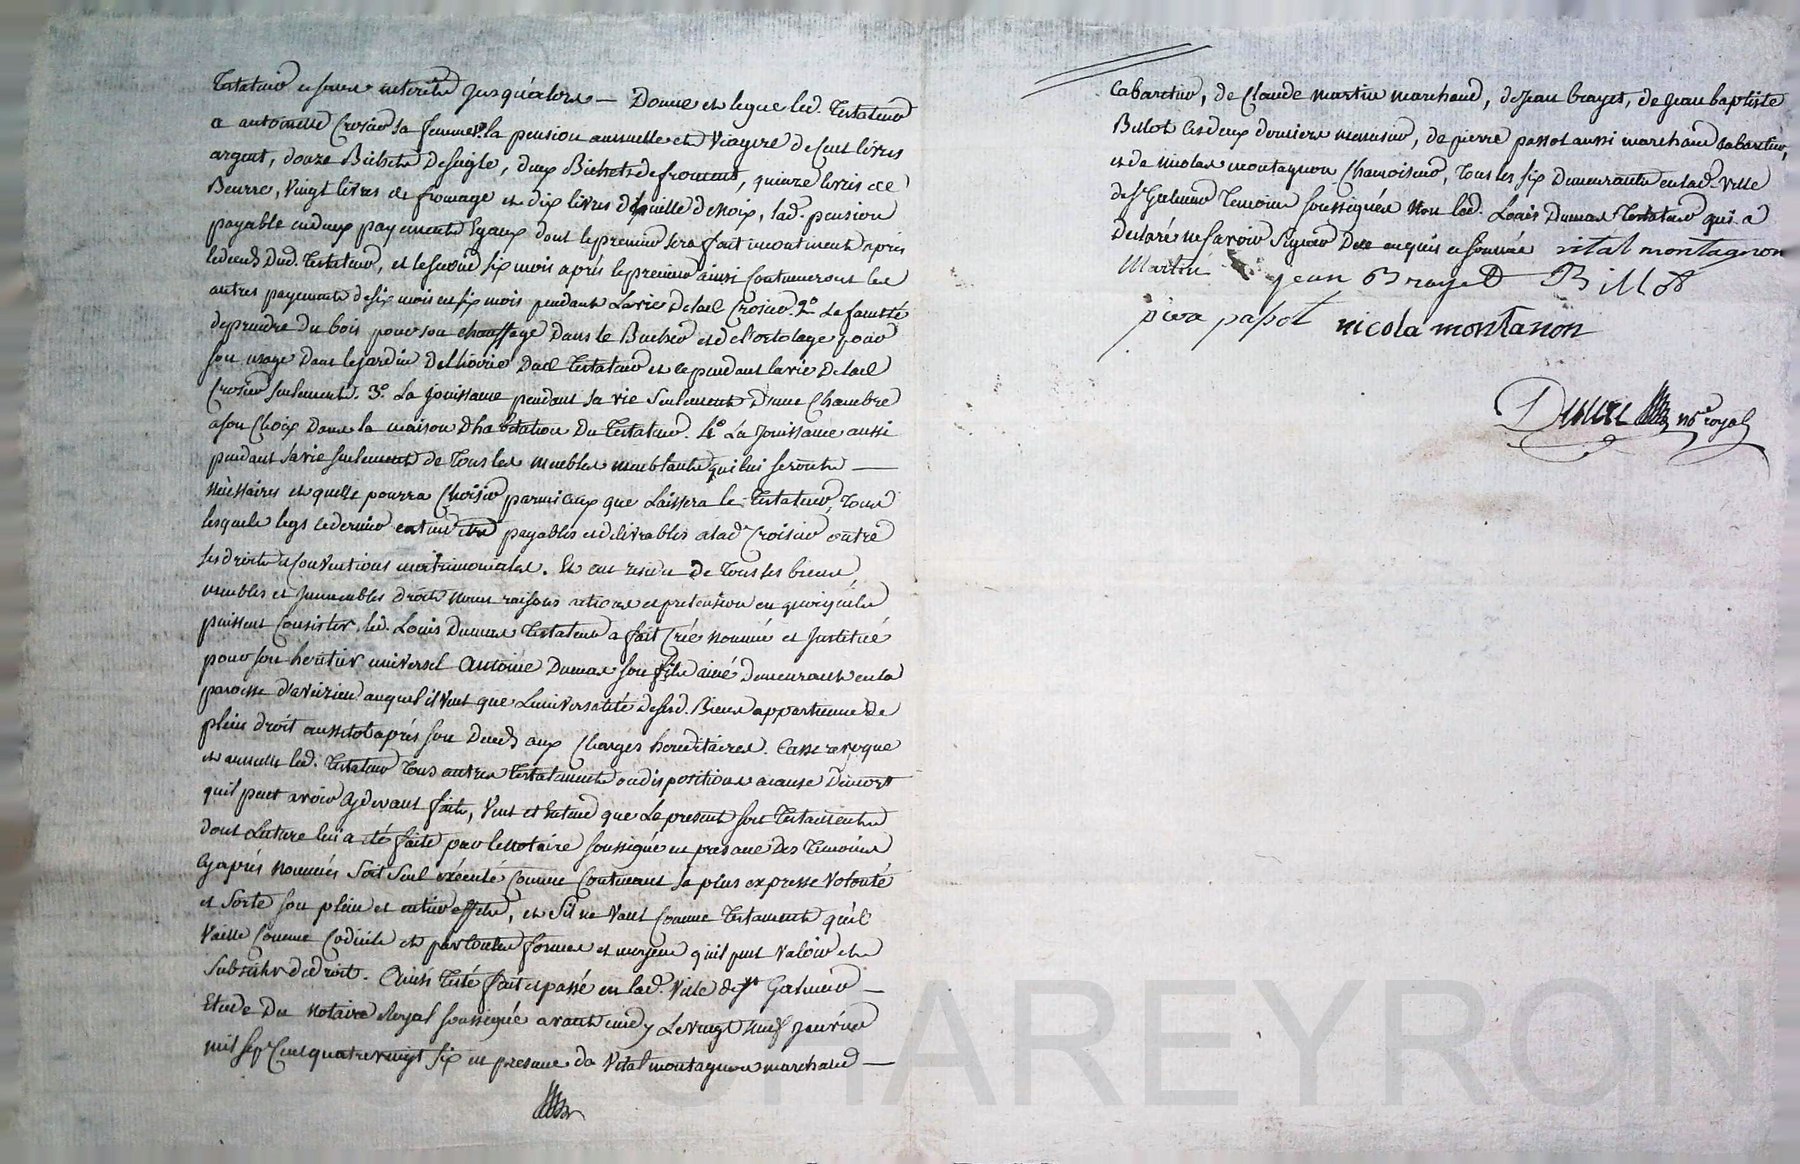 Testateur et sans interêts jusqu'alors — Donne et legue led. Testateur
a antoinette Crosier sa femme 1.° la pension annuelle et viagere de cent livres
argent, douze Bichets de seigle, deux Bichets de froment, quinze livres de
Beurre, vingt livres de fromage et dix livres d'huille de noix, lad. pension
payable en deux payements Egaux dont le premier sera fait incontinent après
le deceds dud. Testateur, et le second six mois aprés le premier ainsi continueront les
autres payements de six mois en six mois pendant la vie de lad. Crosier. 2.° La faculté
de prendre du bois pour son chauffage dans le Bucher et de l'ortolage pour
son usage dans le jardin de l'hoirie dud. Testateur et ce pendant la vie de lad.
Crosier seulement. 3.° La jouissance pendant sa vie seulement d'une chambre
a son choix dans la maison d'habitation du Testateur. 4.° La jouissance aussi
pendant sa vie seulement de tous les meubles meublants qui lui seront —
nécessaires et quelle pourra choisir parmi ceux que laissera le Testateur, tous
lesquels legs ce dernier entend etre payables et delivrables a lad. Croisier outre
ses droits et conventions matrimoniales. Et au residu de tous ses biens
meubles et immeubles droits noms raisons actions et pretension en quoi qu'ils
puissent consister, led. Louis Dumas Testateur a fait créé nommé et institué
pour son heritier universel Antoine Dumas son fils ainé demeurant en la
paroisse d'aveizieu auquel il veut que l'universalité de sesd. Biens appartienne de
plein droit aussitot aprés son deceds aux charges hereditaires. Casse revoque
et annulle led. Testateur tous autres Testaments ou dispositions a cause de mort
qu'il peut avoir cy devant faits, veut et entend que le present son Testament
dont lecture lui a été faite par le notaire soussigné en presence des temoins
cy aprés nommés soit seul exécuté comme contenant sa plus expresse volonté
et sorte son plein et entier effet, et s'il ne vaut comme Testament qu'il
vaille comme codicile et par toutes formes et moyens qu'il peut valoir et
subsister de droit. Ainsi testé fait et passé en lad. ville de St Galmier —
Etude du notaire Royal soussigné avant midy le vingt neuf janvier
mil sept cent quatre vingt six en presence de vital montagnon marchand —
Cabaretier, de Claude martin marchand, de jean brayet, de jean baptiste
Billot ces deux derniers menusier, de pierre passot aussi marchand cabaretier,
et de nicolas montagnon chamoiseur, tous les six demeurants en lad. ville
de St Galmier temoins soussignés non led. Louis Dumas Testateur qui a
declaré ne savoir signer de ce enquis et sommé vital montagnon
Martin jean Brayet Billot
piere pasot nicola montanon
nre royal